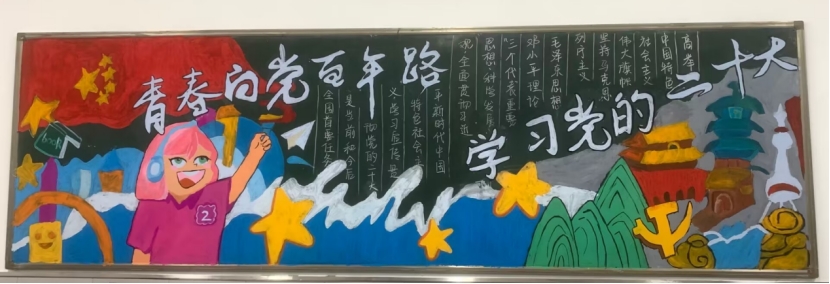 青春向党百年路
学习党的二十大
高举
中国特色
社会主义
伟大旗帜
坚持马克思
列宁主义
毛泽东思想
邓小平理论
"三个代表"重要
思想、科学发展
观,全面贯彻习近
平新时代中国
特色社会主
彻党的二十大
是当前和今后
全国首要任务
2